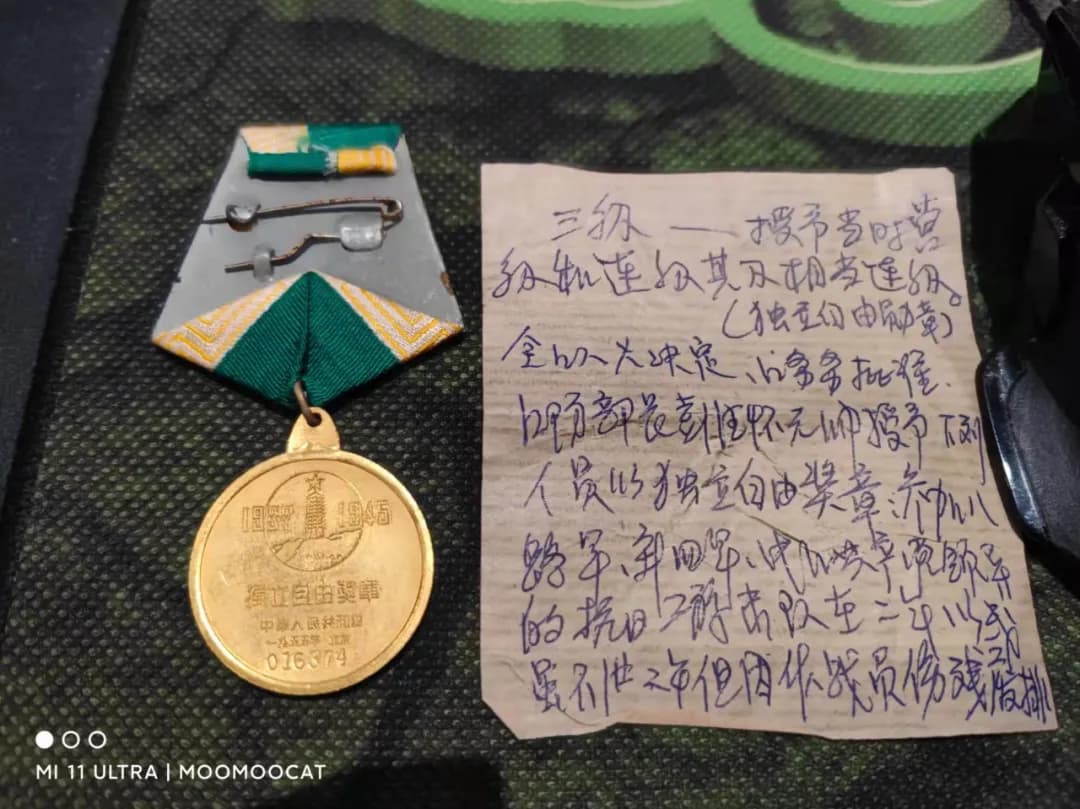 1937 1945
独立自由奖章
中华人民共和国
一九五五年 北京
016374
三级 — 授予当时营
级和连级其及相当连级。
(独立自由勋章)
全国人大决定、国务 批准.
国防部长彭德怀元帅授予下列
人员以独立自由奖章:参加八
路军、新四军、中国共产党领导
的抗日 游击队在二年以
虽不 二年但因作战员伤残废排
MI 11 ULTRA | MOOMOOCAT